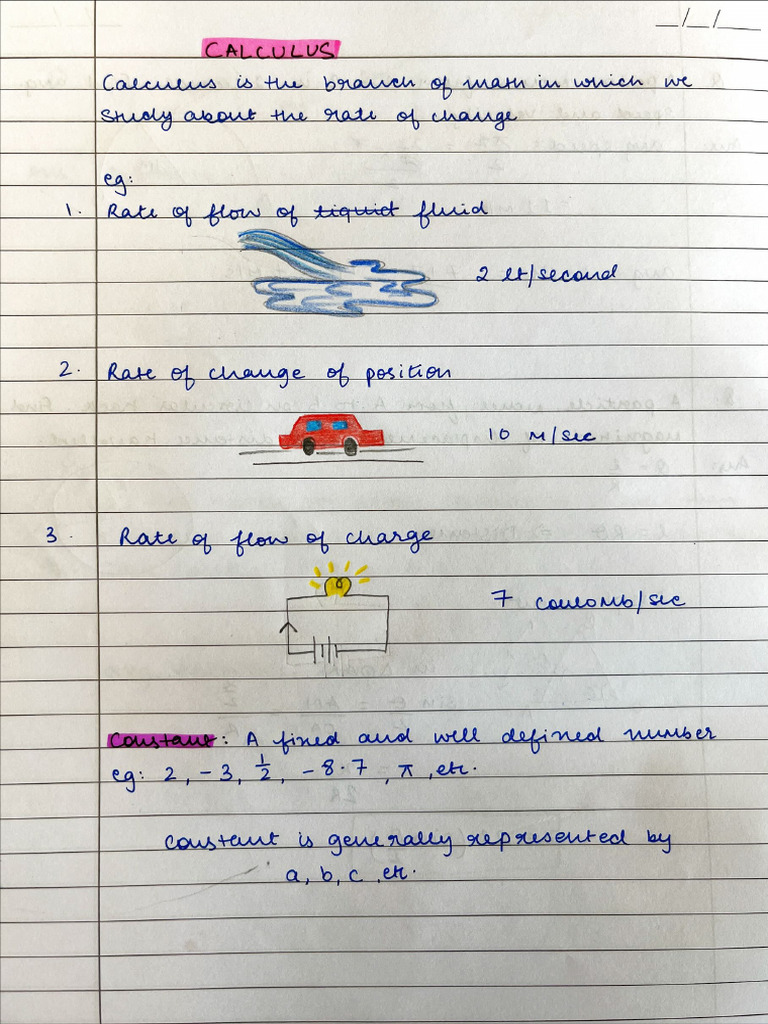 _/_/__
CALCULUS
Calculus is the branch of math in which we
study about the rate of change
eg:
1. Rate of flow of liquid fluid
2 lt/second
2. Rate of change of position
10 m/sec
3. Rate of flow of charge
7 coulomb/sec
Constant: A fixed and well defined number
eg: 2, -3, 1/2, -8.7, π, etc.
constant is generally represented by
a, b, c, etc.